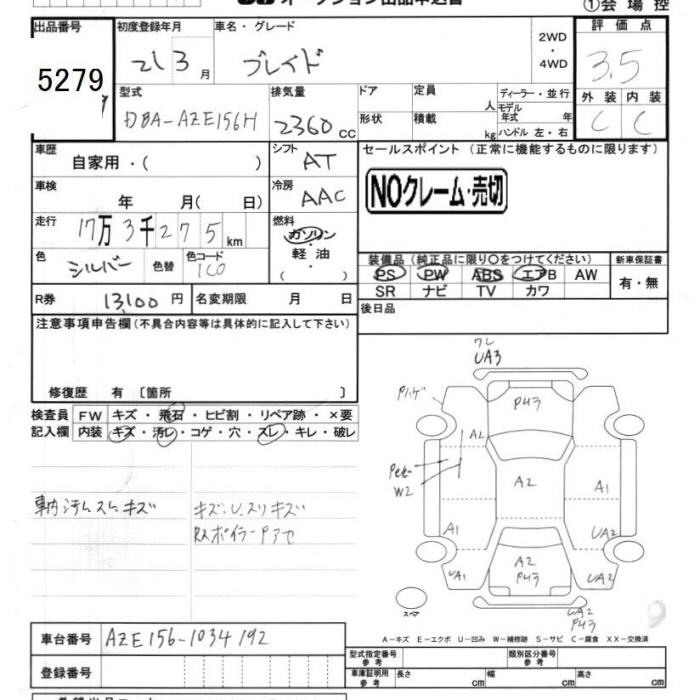 オークション出品申込書 ①会場控
出品番号 初度登録年月 車名・グレード 2WD・4WD 評価点
5279 21 3月 ブレイド 3.5
型式 排気量 ドア 定員 人 ディーラー・並行 外装 内装
DBA-AZE156H 2360cc 形状 積載 kg モデル年式 年 ハンドル 左・右 C C
車歴 自家用・( ) シフト AT セールスポイント (正常に機能するものに限ります)
車検 年 月( 日) 冷房 AAC NOクレーム・売切
走行 17万3千275km 燃料 ガソリン・軽油 ( )
色 シルバー 色替 色コード 1C0
装備品 (純正品に限り○をつけてください) 新車保証書
PS PW ABS エアB AW 有・無
SR ナビ TV カワ
R券 13,100円 名変期限 月 日 後日品
注意事項申告欄(不具合内容等は具体的に記入して下さい)
修復歴 有 〔箇所 〕
検査員 FW キズ・飛石・ヒビ割・リペア跡・×要
記入欄 内装 キズ・汚レ・コゲ・穴・スレ・キレ・破レ
車内汚レスレキズ キズ、U、スリキズ
RスポイラーPアセ
ワレ
UA3
Pハゲ
P4ヲ
A2
W2
A2
A1
A1
UA2
UA1
A2
P4ヲ
UA2
スペア
UA2
P4ヲ
A-キズ E-エクボ U-凹み W-補修跡 S-サビ C-腐食 XX-交換済
車台番号 AZE156-1034192
型式指定番号 参考 類別区分番号 参考
登録番号 車庫証明用 参考 長さ cm 幅 cm 高さ cm